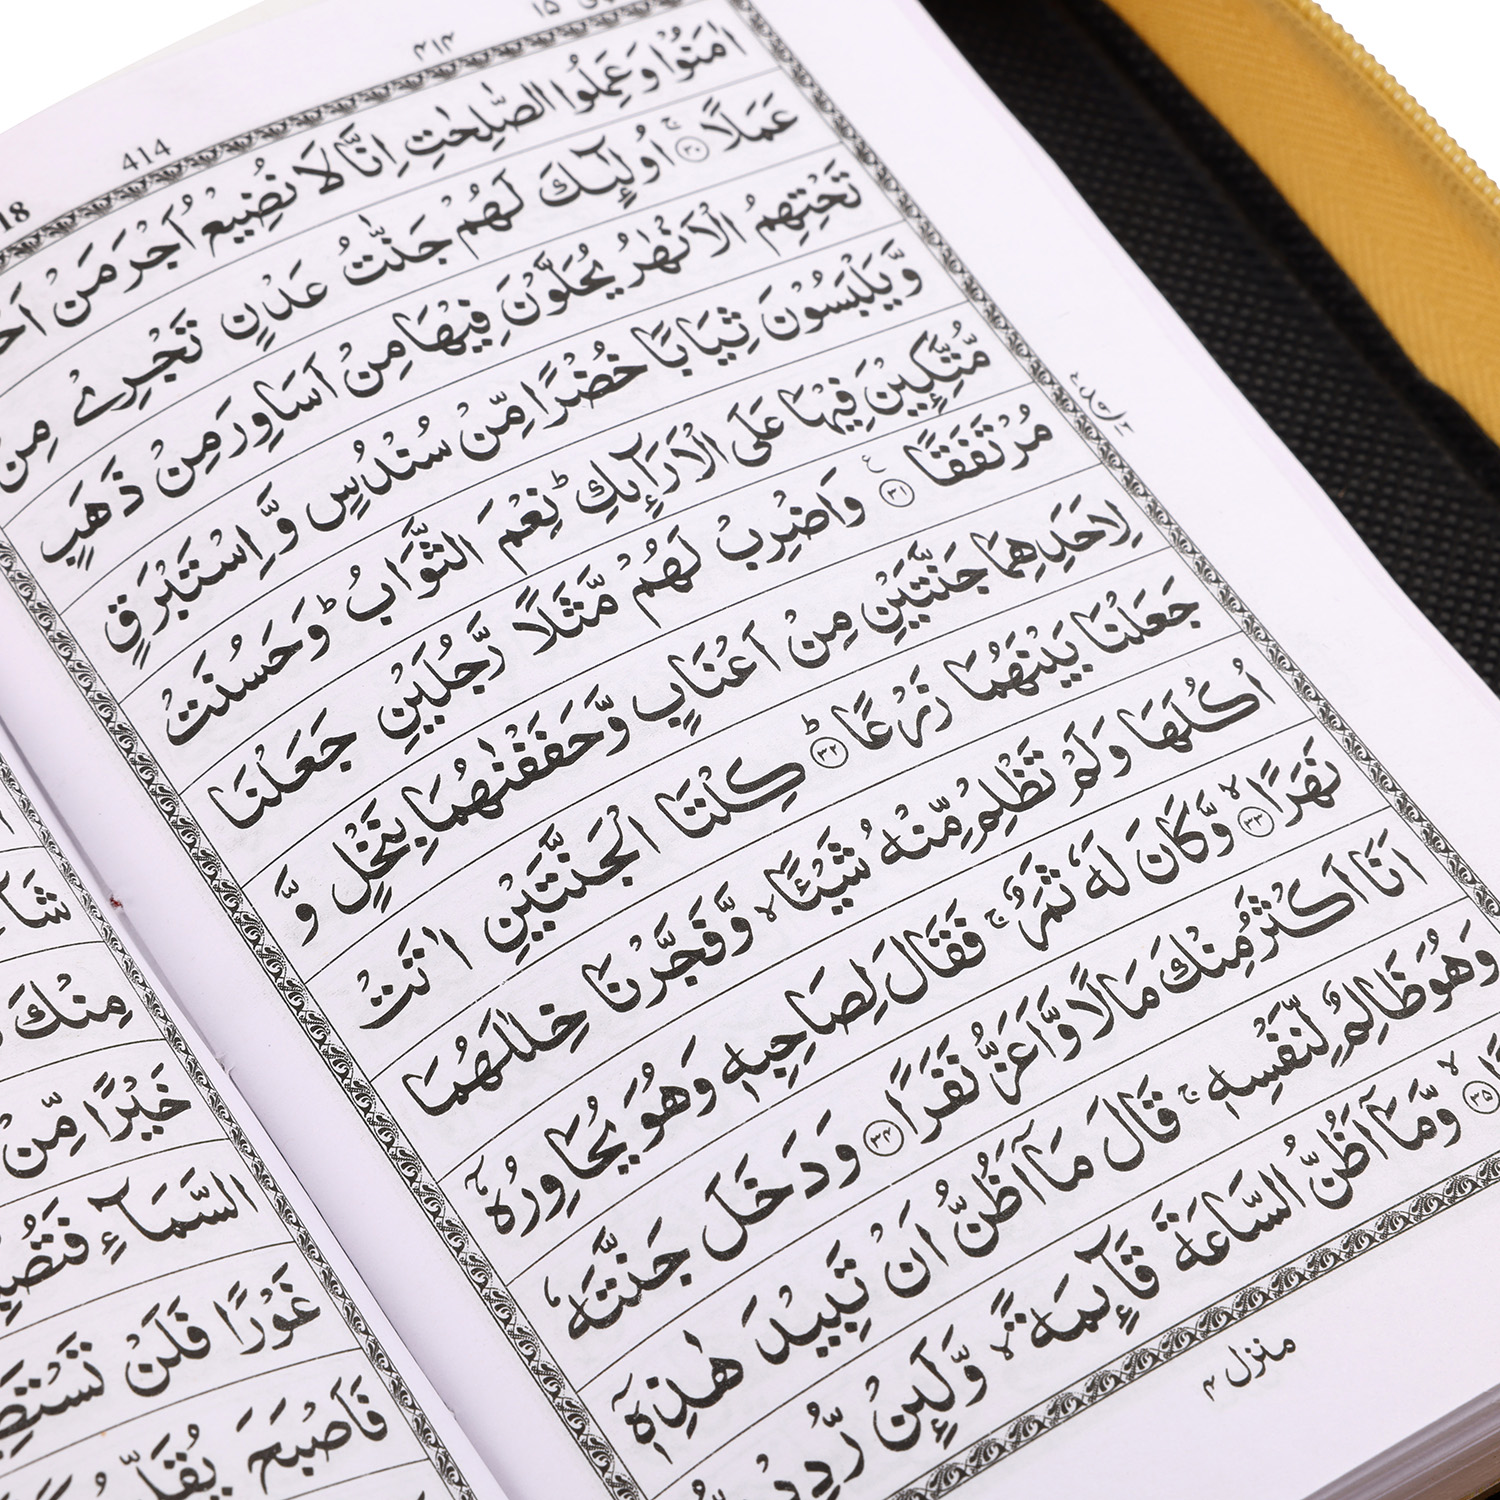 ۱۵
۴۱۴
414
18
اٰمَنُوْا وَعَمِلُوا الصّٰلِحٰتِ اِنَّا لَا نُضِيْعُ اَجْرَ مَنْ
عَمَلًا ۚ﴿۳۰﴾ اُولٰٓئِكَ لَهُمْ جَنّٰتُ عَدْنٍ تَجْرِيْ مِنْ
تَحْتِهِمُ الْاَنْهٰرُ يُحَلَّوْنَ فِيْهَا مِنْ اَسَاوِرَ مِنْ ذَهَبٍ
وَّيَلْبَسُوْنَ ثِيَابًا خُضْرًا مِّنْ سُنْدُسٍ وَّاِسْتَبْرَقٍ
مُّتَّكِـِٕيْنَ فِيْهَا عَلَى الْاَرَآئِكِ ؕ نِعْمَ الثَّوَابُ ؕ وَحَسُنَتْ
مُرْتَفَقًا ﴿۳۱﴾ وَاضْرِبْ لَهُمْ مَّثَلًا رَّجُلَيْنِ جَعَلْنَا
لِاَحَدِهِمَا جَنَّتَيْنِ مِنْ اَعْنَابٍ وَّحَفَفْنٰهُمَا بِنَخْلٍ وَّ
جَعَلْنَا بَيْنَهُمَا زَرْعًا ؕ﴿۳۲﴾ كِلْتَا الْجَنَّتَيْنِ اٰتَتْ
اُكُلَهَا وَلَمْ تَظْلِمْ مِّنْهُ شَيْـًٔا ۙ وَّفَجَّرْنَا خِلٰلَهُمَا
نَهَرًا ۙ﴿۳۳﴾ وَّكَانَ لَهٗ ثَمَرٌ ۚ فَقَالَ لِصَاحِبِهٖ وَهُوَ يُحَاوِرُهٗٓ
اَنَا اَكْثَرُ مِنْكَ مَالًا وَّاَعَزُّ نَفَرًا ﴿۳۴﴾ وَدَخَلَ جَنَّتَهٗ
وَهُوَ ظَالِمٌ لِّنَفْسِهٖ ۚ قَالَ مَآ اَظُنُّ اَنْ تَبِيْدَ هٰذِهٖٓ
ۙ﴿۳۵﴾ وَّمَآ اَظُنُّ السَّاعَةَ قَآئِمَةً ۙ وَّلَئِنْ رُّدِدْتُّ
منزل ۴
مِنْكَ
خَيْرًا مِّنْ
السَّمَآءِ
غَوْرًا فَلَنْ
فَاَصْبَحَ يُقَلِّبُ